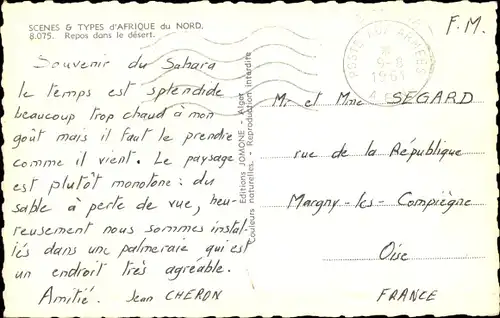 SCENES & TYPES d'AFRIQUE du NORD.
8.075. Repos dans le désert.
F.M.
POSTE AUX ARMEES
9-8
1961
Souvenir du Sahara
le temps est splendide
beaucoup trop chaud à mon
goût mais il faut le prendre
comme il vient. Le paysage
est plutôt monotone : du
sable à perte de vue, heu-
reusement nous sommes instal-
lés dans une palmeraie qui est
un endroit très agréable.
Amitié. Jean CHERON
Editions JOMONE - Alger
Couleurs naturelles. - Reproduction interdite
Mr et Mme SEGARD
rue de la République
Margny-les-Compiègne
Oise
FRANCE